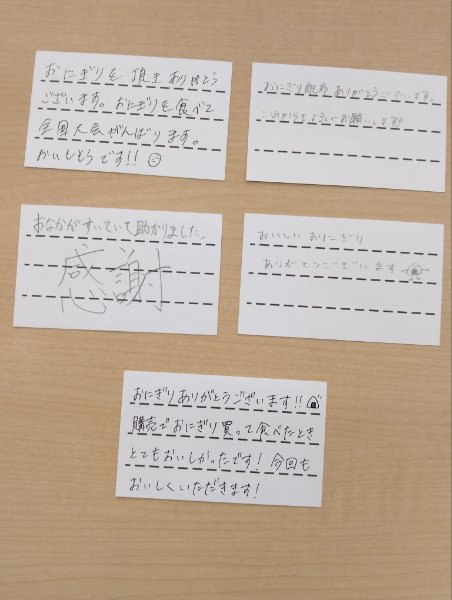 おにぎりを頂きありがとう
ございます。おにぎりを食べて
全国大会がんばります。
おいしそうです!!
おにぎり配布ありがとうございます。
これからもよろしくお願いします
おなかがすいていて助かりました。
感謝
おいしい おにぎり
ありがとうございます
おにぎりありがとうございます!!
購売でおにぎり買って食べたとき
とてもおいしかったです! 今回も
おいしくいただきます!